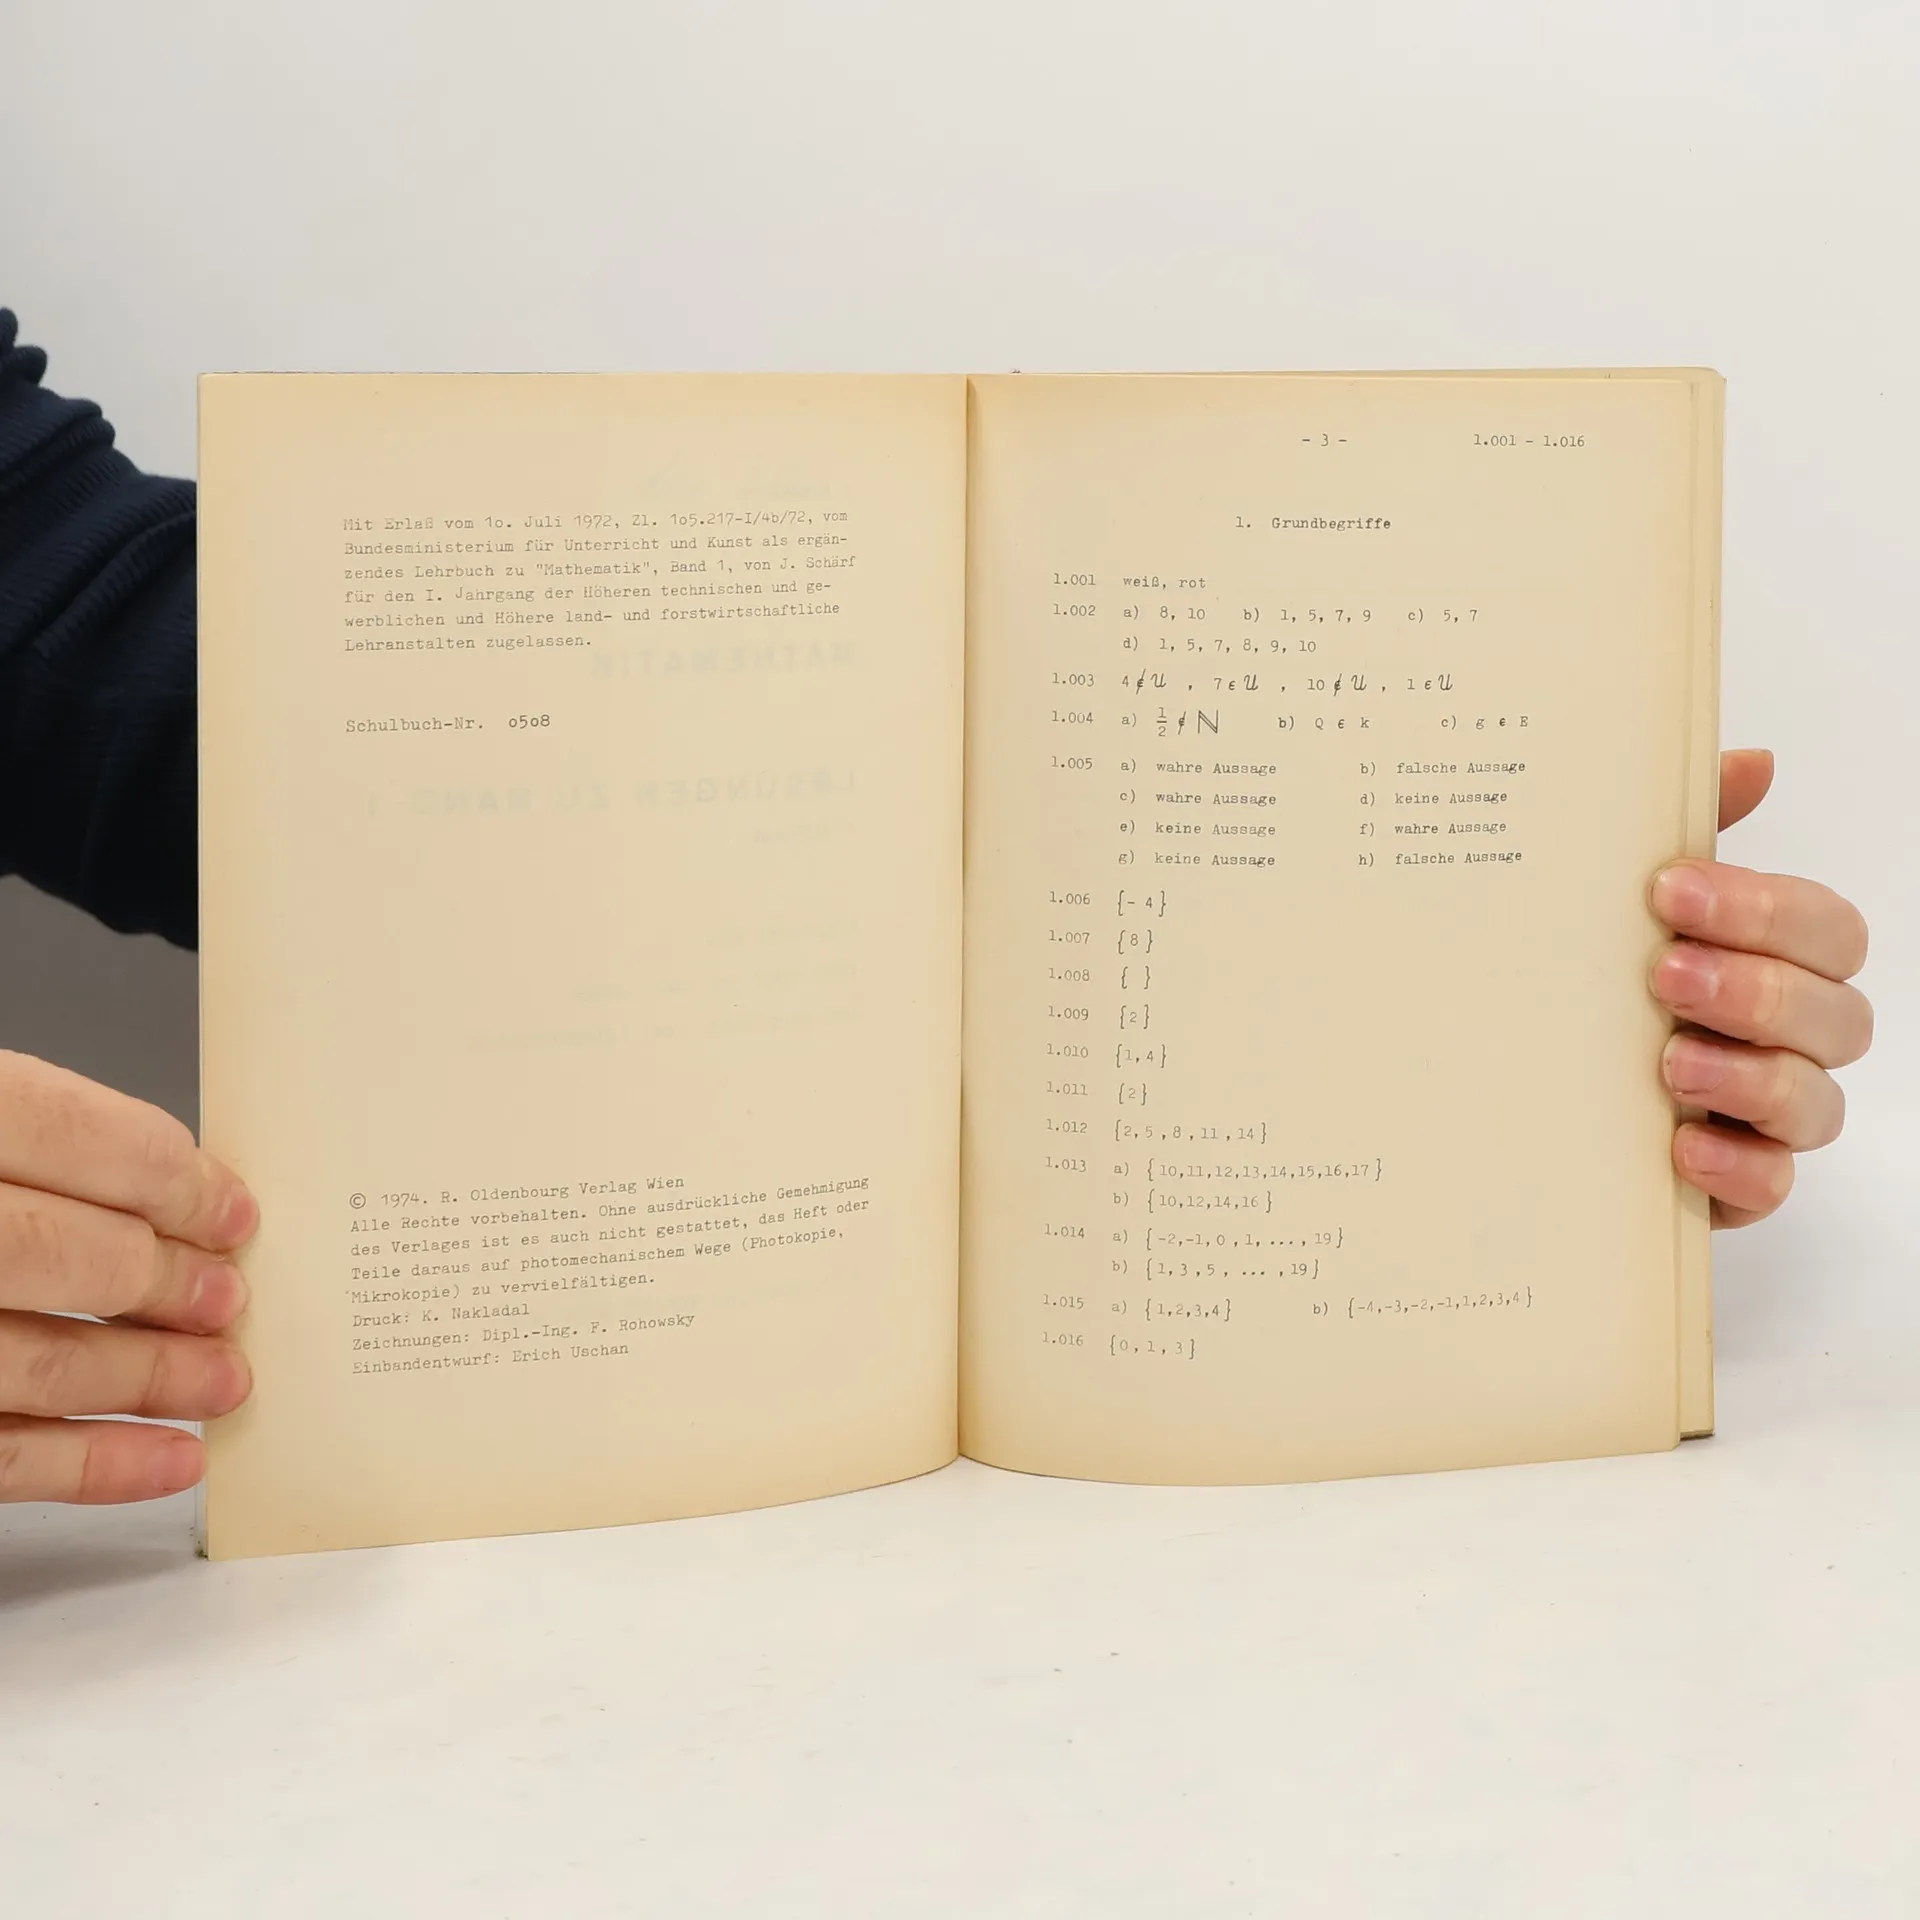 Mit Erlaß vom 1o. Juli 1972, Zl. 1o5.217-I/4b/72, vom
Bundesministerium für Unterricht und Kunst als ergän-
zendes Lehrbuch zu "Mathematik", Band 1, von J. Schärf
für den I. Jahrgang der Höheren technischen und ge-
werblichen und Höhere land- und forstwirtschaftliche
Lehranstalten zugelassen.
Schulbuch-Nr. o5o8
© 1974. R. Oldenbourg Verlag Wien
Alle Rechte vorbehalten. Ohne ausdrückliche Gemehmigung
des Verlages ist es auch nicht gestattet, das Heft oder
Teile daraus auf photomechanischem Wege (Photokopie,
Mikrokopie) zu vervielfältigen.
Druck: K. Nakladal
Zeichnungen: Dipl.-Ing. F. Rohowsky
Einbandentwurf: Erich Uschan
- 3 - 1.001 - 1.016
1. Grundbegriffe
1.001 weiß, rot
1.002 a) 8, 10 b) 1, 5, 7, 9 c) 5, 7
d) 1, 5, 7, 8, 9, 10
1.003 4 ∉ U , 7 ∈ U , 10 ∉ U , 1 ∈ U
1.004 a) 1/2 ∉ ℕ b) Q ∈ k c) g ∈ E
1.005 a) wahre Aussage b) falsche Aussage
c) wahre Aussage d) keine Aussage
e) keine Aussage f) wahre Aussage
g) keine Aussage h) falsche Aussage
1.006 {- 4}
1.007 {8}
1.008 { }
1.009 {2}
1.010 {1, 4}
1.011 {2}
1.012 {2, 5 , 8 , 11 , 14 }
1.013 a) { 10,11,12,13,14,15,16,17 }
b) { 10,12,14,16 }
1.014 a) { -2,-1, 0 , 1, ..., 19 }
b) { 1, 3 , 5 , ... , 19 }
1.015 a) { 1,2,3,4 } b) {-4,-3,-2,-1,1,2,3,4 }
1.016 {0 , 1 , 3 }